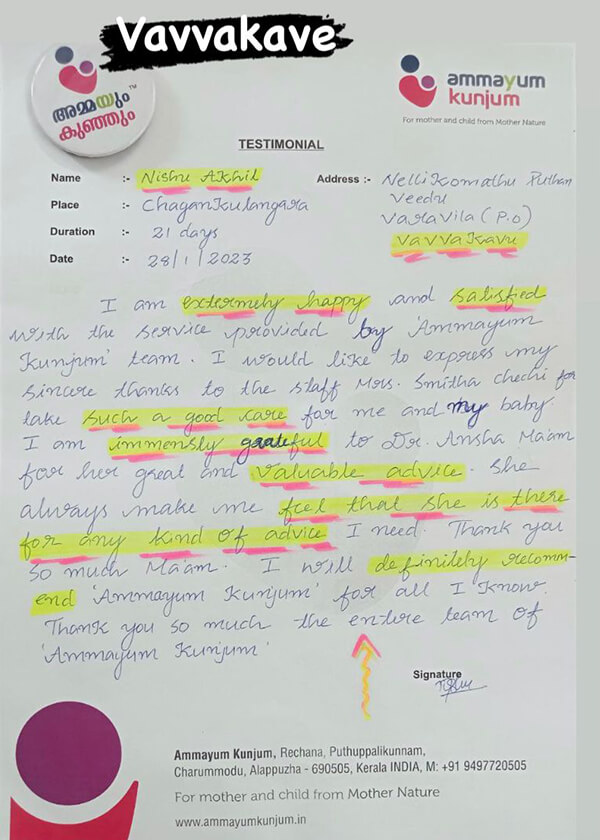 Vavvakave
അമ്മയും
കുഞ്ഞും
TM
ammayum
kunjum
For mother and child from Mother Nature
TESTIMONIAL
Name :- Nishu Akhil
Address :- Nellikomathu Puthan
Veedu
Varavila (P.O)
Vavvakavu
Place :- Chagankulangara
Duration :- 21 days
Date :- 28/1/2023
I am extermely happy and satisfied
with the service provided by 'Ammayum
Kunjum' team. I would like to express my
sincere thanks to the staff Mrs. Smitha chechi for
take such a good care for me and my baby.
I am immensly grateful to Dr. Ansha Ma'am
for her great and valuable advice. She
always make me feel that she is there
for any kind of advice I need. Thank you
so much Ma'am. I will definitely recomm-
end 'Ammayum Kunjum' for all I know.
Thank you so much the entire team of
'Ammayum Kunjum'
Signature
Ammayum Kunjum, Rechana, Puthuppalikunnam,
Charummodu, Alappuzha - 690505, Kerala INDIA, M: +91 9497720505
For mother and child from Mother Nature
www.ammayumkunjum.in